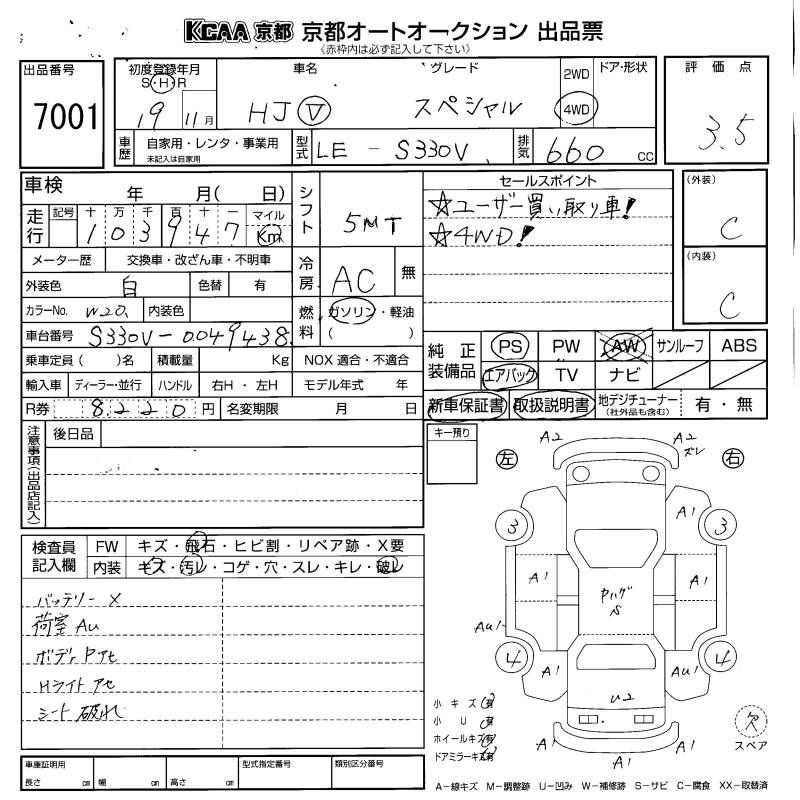 KCAA 京都 京都オートオークション 出品票
(赤枠内は必ず記入して下さい)
出品番号
7001
初度登録年月
S・H・R
19 11月
車名
HJ V
グレード
スペシャル
2WD
4WD
ドア・形状
評価点
3.5
車歴
自家用・レンタ・事業用
未記入は自家用
型式
LE - S330V
排気
660 cc
車検 年 月( 日)
走行
記号 十 万 千 百 十 一 マイル
1 0 3 9 4 7 Km
シフト
5MT
メーター歴 交換車・改ざん車・不明車
冷房
AC 無
外装色 白 色替 有
カラーNo. W20 内装色
燃料
ガソリン・軽油
( )
車台番号 S330V-0049438
乗車定員( )名 積載量 Kg NOX 適合・不適合
輸入車 ディーラー・並行 ハンドル 右H・左H モデル年式 年
R券 8220 円 名変期限 月 日
セールスポイント
☆ユーザー買い取り車!
☆4WD!
(外装)
C
(内装)
C
純正装備品
PS PW AW サンルーフ ABS
エアバック TV ナビ
新車保証書 取扱説明書 地デジチューナー
(社外品も含む)
有・無
注意事項(出品店記入)
後日品
キー預り
検査員記入欄
FW キズ・飛石・ヒビ割・リペア跡・X要
内装 キズ・汚レ・コゲ・穴・スレ・キレ・破レ
バッテリー X
荷室 AU
ボディ Pアセ
Hライト アセ
シート 破れ
左
右
A2
A2
ズレ
3
3
A1
A1
A1
AU1
S
4
4
A1
AU1
U2
A1
A1
小キズ(有)
小 U (有)
ホイールキズ(有)
ドアミラーキズ(有)
欠
スペア
車庫証明用
長さ cm 幅 cm 高さ cm
型式指定番号
類別区分番号
A-線キズ M-調整跡 U-凹み W-補修跡 S-サビ C-腐食 XX-取替済